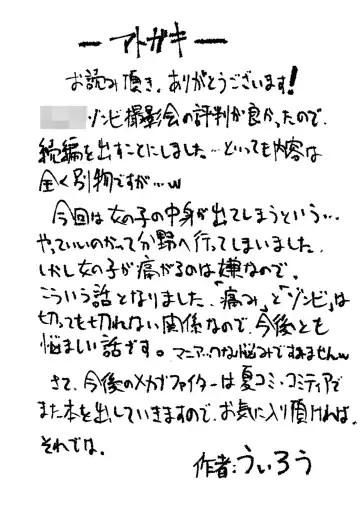 ーアトガキー
お読み頂き、ありがとうございます!
ゾンビ撮影会の評判が良かったので、
続編を出すことにしました…といっても内容は
全く別物ですが…w
今回は女の子の中身が出てしまうという…
やっていいのかって分野へ行ってしまいました。
しかし女の子が痛がるのは嫌なので、
こういう話となりました。「痛み」と「ゾンビ」は
切っても切れない関係なので、今後とも
悩ましい話です。マニアックな悩みですみませんw
さて、今後のメカブファイターは夏コミ・コミティアで
また本を出していきますので、お気に入り頂ければ。
それでは。
作者:ういろう